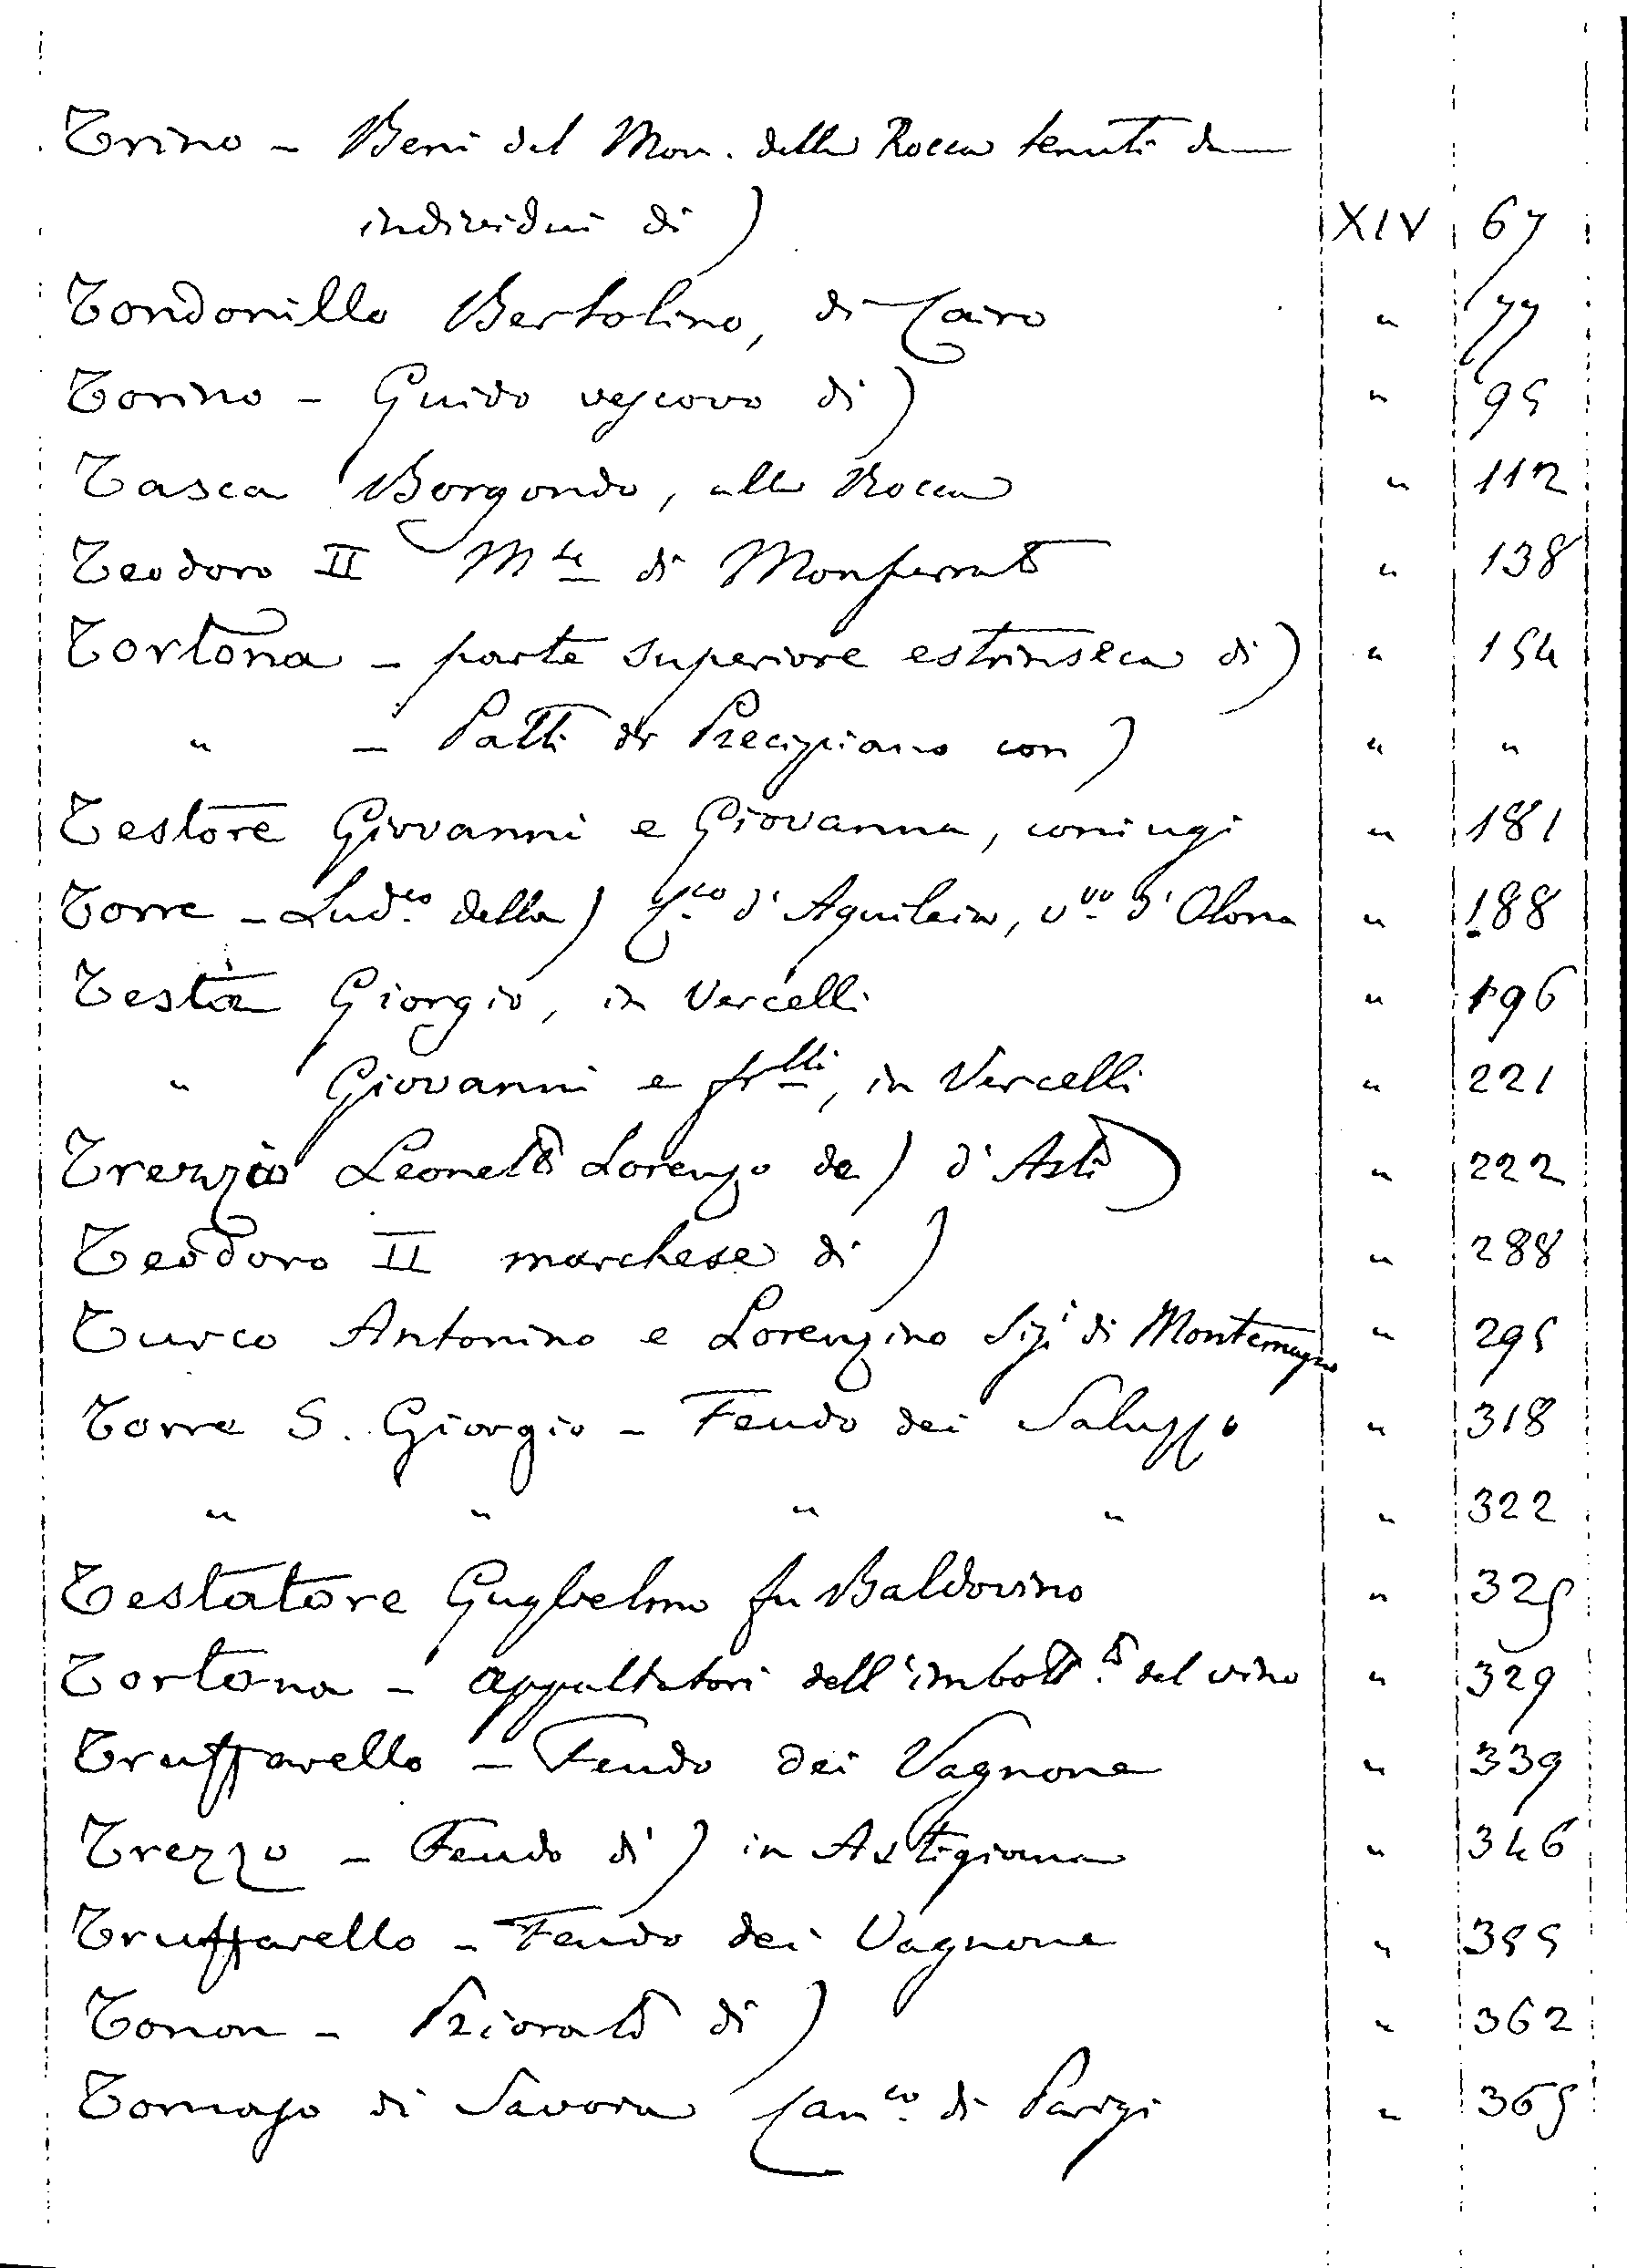 Trino - Beni del Mon. della Rocca tenuti da
individui di) XIV 67
Tondonillo Bertolino, di Cairo " 77
Torino - Guido vescovo di) " 95
Tasca Borgondo, alla Rocca " 112
Teodoro II Mse di Monferrato " 138
Tortona - parte superiore estrinseca di) " 154
" - Patti di Precipiano con) " "
Testore Giovanni e Giovanna, coniugi " 181
Torre - Ludco della) d'Aquileia, vvo d'Olona " 188
Testa Giorgio, in Vercelli " 196
" Giovanni e frlli, in Vercelli " 221
Trezzo Leonetto Lorenzo de) d'Asti) " 222
Teodoro II marchese di) " 288
Turco Antonino e Lorenzino Sigi di Montemagno " 295
Torre S. Giorgio - Feudo dei Saluzzo " 318
" " " " " 322
Testatore Guglielmo fu Baldovino " 325
Tortona - appaltatori dell'imbott.to del vino " 329
Truffarello - Feudo dei Vagnone " 339
Trezzo - Feudo di) in Astigiana " 346
Truffarello - Feudo dei Vagnone " 355
Tonon - Priorato di) " 362
Tomaso di Savoia Canco di Parigi " 365